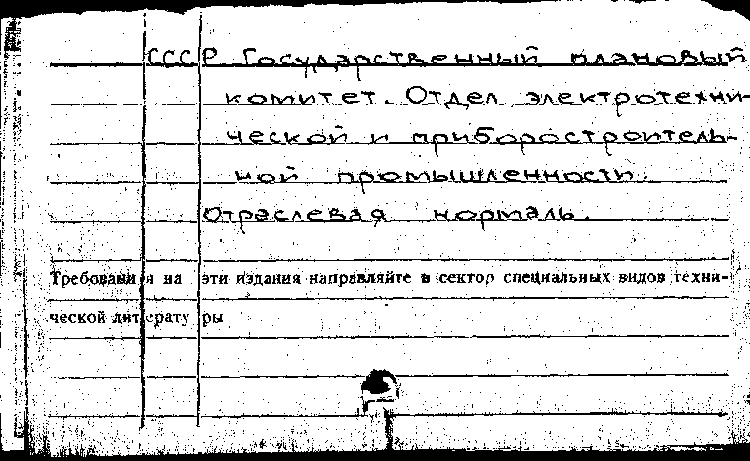 СССР Государственный плановый
комитет. Отдел электротехни-
ческой и приборостроитель-
ной промышленности.
Отраслевая нормаль.
Требования на эти издания направляйте в сектор специальных видов техни-
ческой литературы